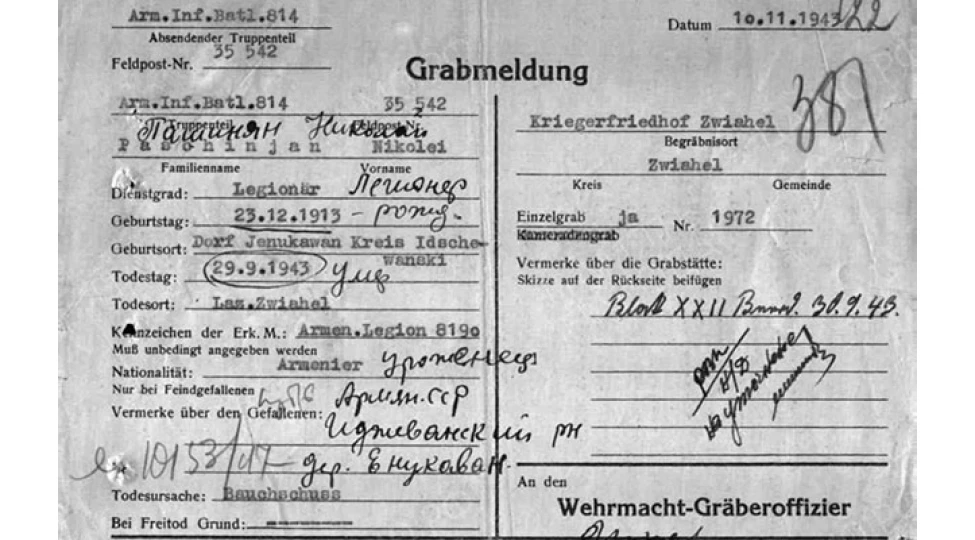 Arm.Inf.Batl.814
Absendender Truppenteil
Feldpost-Nr. 35 542
Datum 10.11.1943 22
Grabmeldung
Arm.Inf.Batl.814 35 542
Truppenteil Feldpost-Nr.
Пашинян Николай
Paschinjan Nikolei
Familienname Vorname
Dienstgrad: Legionär Легионер
Geburtstag: 23.12.1913 –
Geburtsort: Dorf Jenukawan Kreis Idsche-
wanski
Todestag: 29.9.1943 умер
Todesort: Laz.Zwiahel
Kennzeichen der Erk. M.: Armen.Legion 8190
Muß unbedingt angegeben werden
Nationalität: Armenier уроженец
Nur bei Feindgefallenen
Армян.ССР
Vermerke über den Gefallenen:
Иджеванский рн
10153/47 – дер. Енукаван.
Todesursache: Bauchschuss
Bei Freitod Grund:
387
Kriegerfriedhof Zwiahel
Begräbnisort
Zwiahel
Kreis Gemeinde
Einzelgrab ja Nr. 1972
Kameradengrab
Vermerke über die Grabstätte:
Skizze auf der Rückseite beifügen
Block XXII 30.9.43.
An den
Wehrmacht-Gräberoffizier